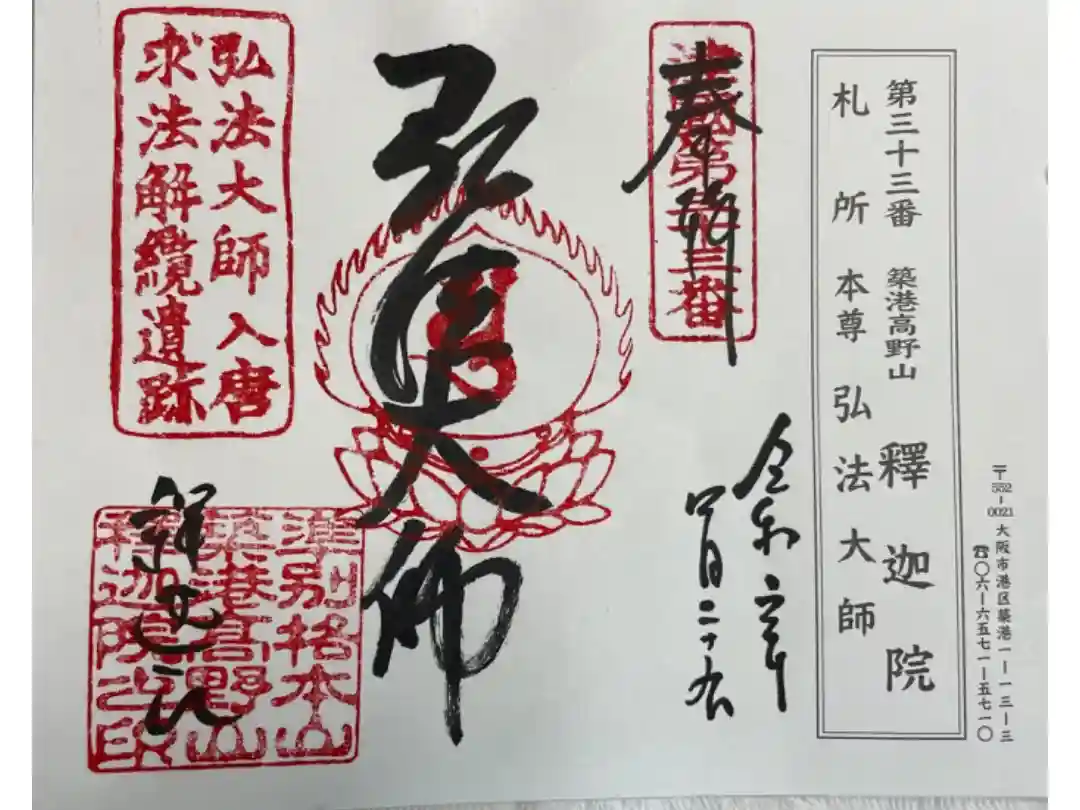 〒552-0021 大阪市港区築港一ー一三ー三
☎〇六ー六五七一ー五七一〇
第三十三番 築港高野山 釋迦院
札所本尊 弘法大師
奉拝
令和六年
四月二十九
弘法大師
弘法大師入唐
求法解纜遺跡
釋迦院
準別格本山
築港高野山
釋迦院之印